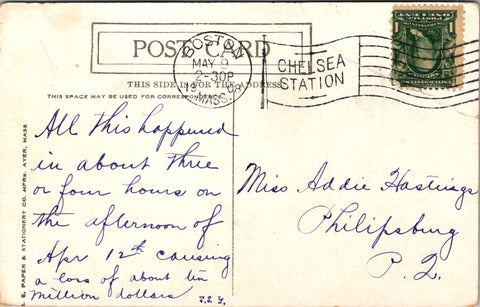 POST CARD
THIS SIDE IS FOR THE ADDRESS
THIS SPACE MAY BE USED FOR CORRESPONDENCE
BOSTON
MAY 9
2-30P
1908
MASS.
CHELSEA
STATION
All this happened
in about three
or four hours on
the afternoon of
Apr 12th causing
a loss of about ten
million dollars
Miss Addie Hastings
Philipsburg
P. Q.
PAPER & STATIONERY CO. MFRS. AYER, MASS